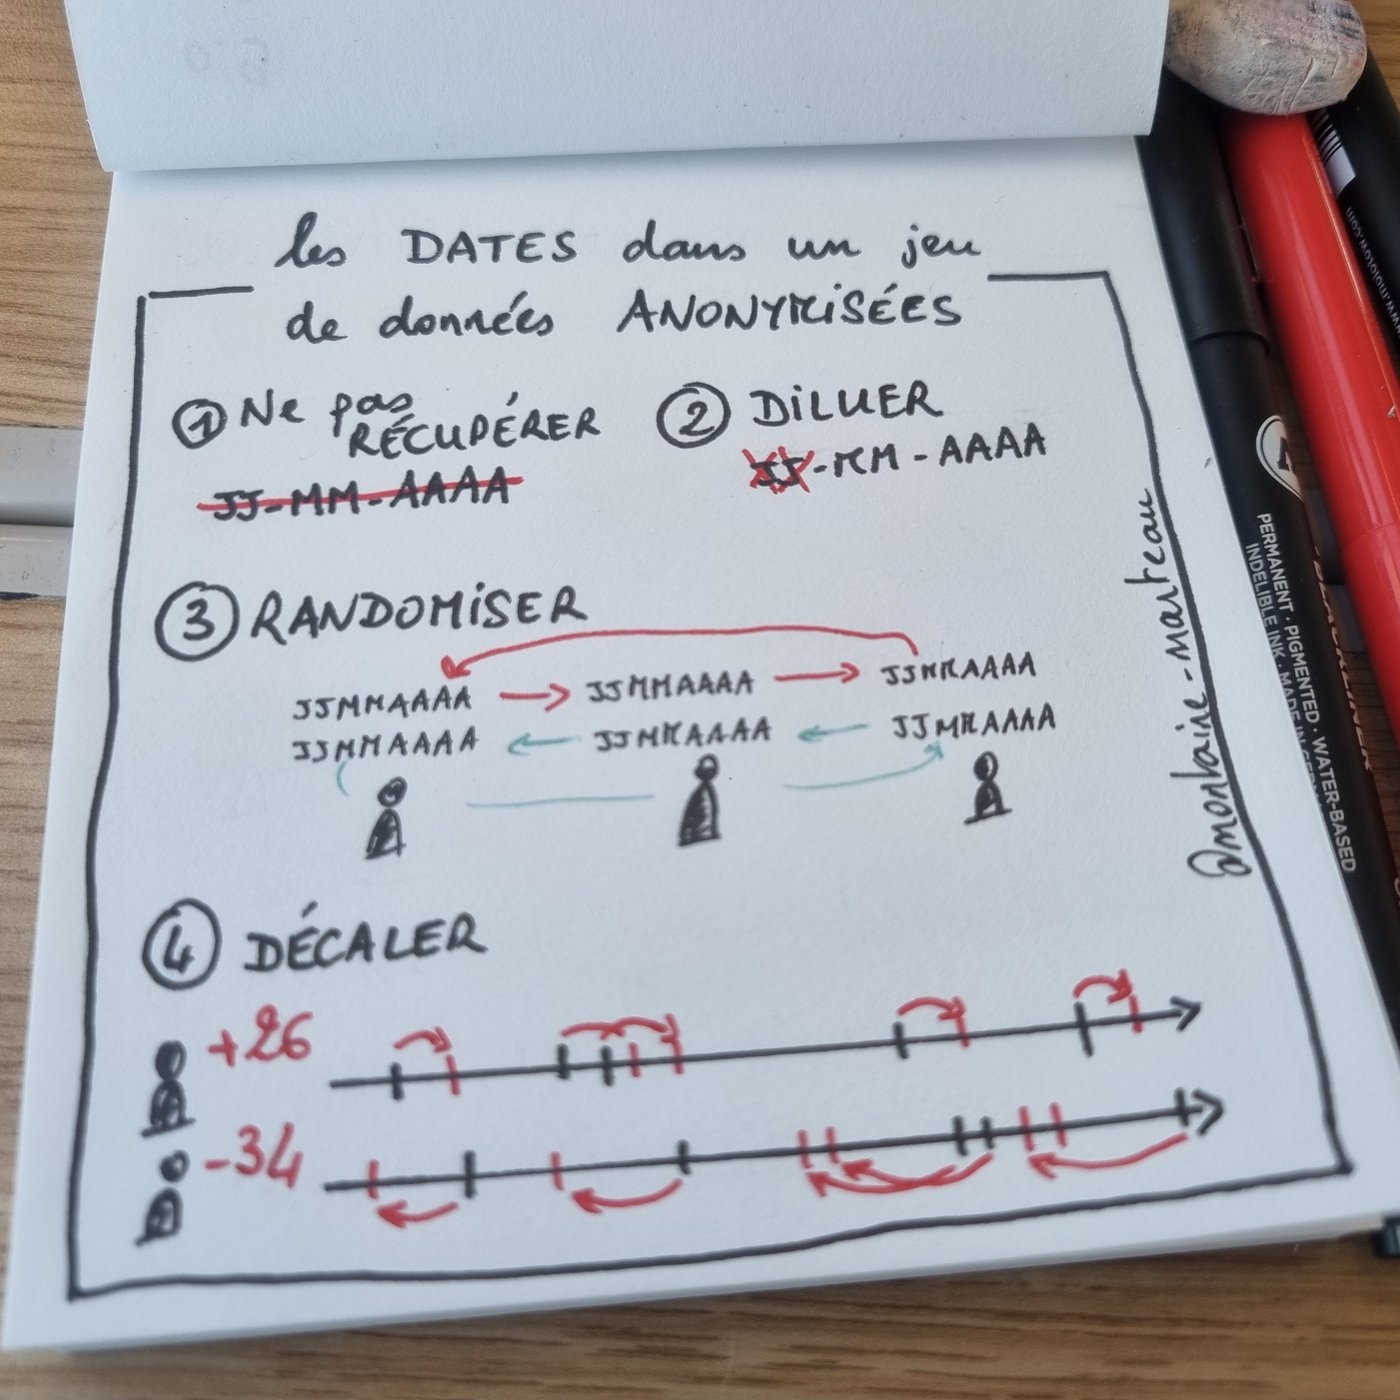 les DATES dans un jeu
de données ANONYMISÉES
① Ne pas
RÉCUPÉRER
JJ-MM-AAAA
② DILUER
JJ-MM-AAAA
③ RANDOMISER
JJMMAAAA → JJMMAAAA → JJMMAAAA
JJMMAAAA ← JJMMAAAA ← JJMMAAAA
④ DÉCALER
+26
-34
PERMANENT · PIGMENTED · WATER-BASED